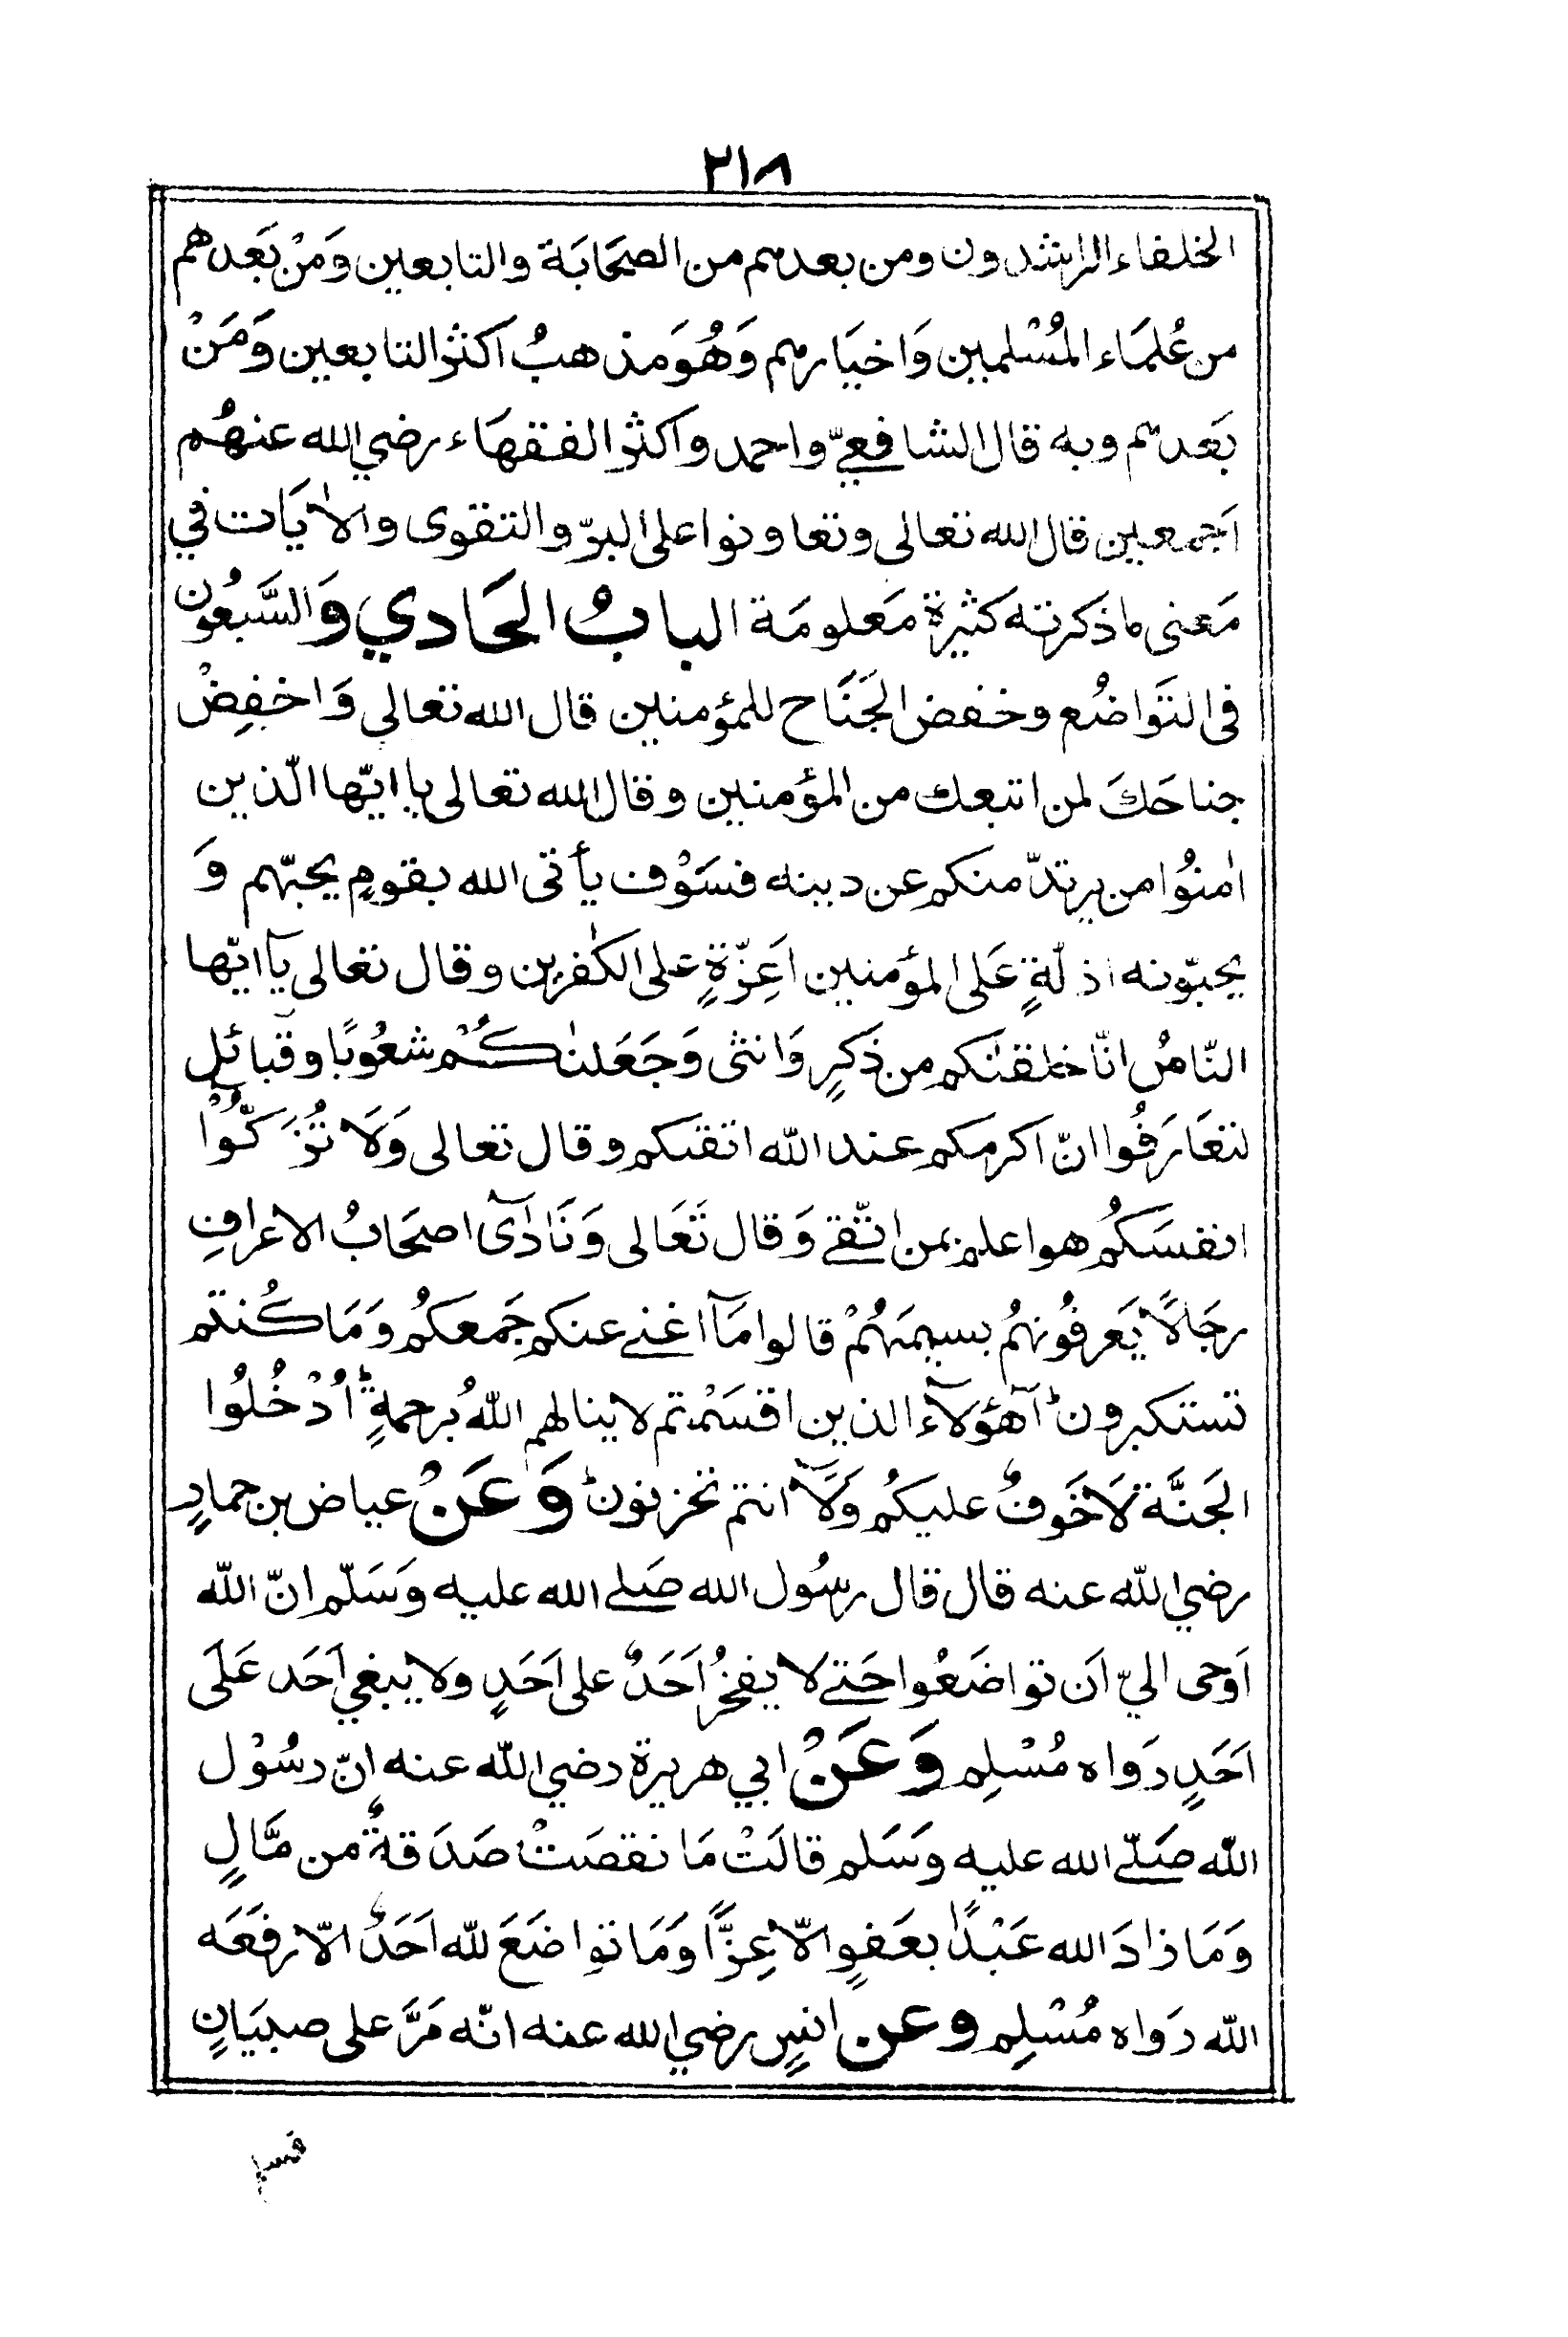 ٢١٨
الخلفاء الراشدون ومن بعدهم من الصحَابَة والتابعين وَمَنْ بَعَدهم
من عُلمَاء المُسْلمين وَاخيَارهم وَهُوَ مذهبُ اَكثر التابعين وَمَنْ
بَعَدهم وبه قال الشافعيّ واحمد واكثر الفقهَاء رضي الله عنهُم
اَجمعين قال الله تعالى وتعاونوا على البرّ والتقوى والاٰيَات في
مَعنى ما ذَكرته كثيرة مَعلومَة البابُ الحَادي وَالسَّبعُون
فى التَوَاضُع وخفض الجَنَاح للمؤمنين قال الله تعالي وَاخفِضْ
جناحَكَ لمن اتبعك من المؤمنين وقال الله تعالى يا ايّها الّذين
اٰمنوُا من يرتدّ منكم عن دينه فسَوْف يأتى الله بقومٍ يحبّهم وَ
يحبّونه اذلّةٍ عَلى المؤمنين اَعِزّةٍ على الكٰفرين وقال تعالى يآ ايّها
النّاسُ انّا خلقنٰكم مِن ذَكرٍ وَانثى وَجَعَلنٰكُمْ شعُوبًا وقبائل
لتعَارَفُوا انّ اكرمكم عند الله اتقٰكم وقال تعالى وَلَا تُزَكّوُْآ
انفسَكُم هو اعلم بمن اتّقے وَقال تَعَالى وَنَادٰىٓ اصحَابُ الاعرافِ
رجَالًا يَعرفُونهُم بسيمٰهُمْ قالوا مَآ اغنے عنكم جَمعكُم وَمَا كُنتم
تستكبرون ؕ اَهٰٓؤلآء الذين اقسَمْتم لا ينالهم اللهُ برحمةٍ ؕ اُدْخُلُوا
الجَنَّة لَا خَوفٌ عليكُم وَلَآ انتم تحزنون ؕ وَعَنْ عياض بن حمادٍ
رضي الله عنه قال قال رسُول الله صَلے الله عليه وَسَلّم انّ الله
اَوحى اليّ اَن تواضَعُوا حَتے لا يفخرُ اَحَدٌ على اَحَدٍ ولا يبغي اَحَد عَلَى
اَحَدٍ رَواه مُسْلِم وَعَنْ ابي هريرة رضي الله عنه انّ رسُوْل
الله صَلّے الله عليه وَسَلم قالَتْ مَا نقصَتْ صَدَقةٌ من مَّالٍ
وَمَا زادَ الله عَبْدًا بعَفوٍ الّا عِزًّا وَمَا تواضَعَ لله اَحَدٌ الّا رفَعَه
الله رَواه مُسْلِم وعن انسٍ رضي الله عنه انّه مَرَّ على صبيَانٍ
فسلم